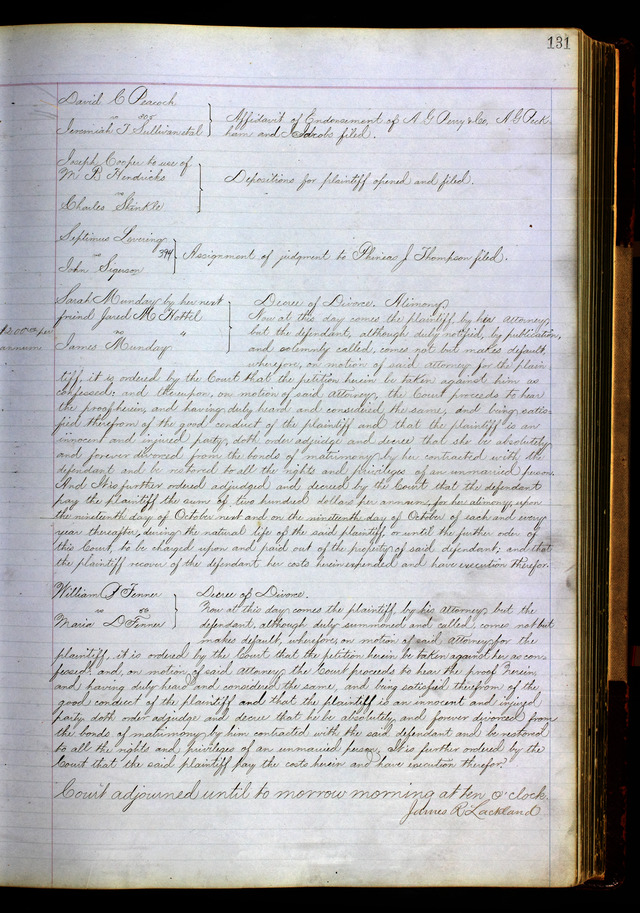 131
David C Peacock
vs 305
Jeremiah T Sullivan et al
Affidavit of Endorsement of A G Perry & Co, A G Peck-
ham and I Jacobs filed.
Joseph Cooper to use of
W B Hendricks
vs
Charles Skinkle
Depositions for plaintiff opened and filed.
Septimus Levering
vs 394
John Sigerson
Assignment of judgment to Phineas J Thompson filed.
Sarah Munday by her next
friend Jared M Hottel
vs "
James Munday
$200.00 per
annum
Decree of Divorce. Alimony
Now at this day comes the plaintiff by her attorney,
but the defendant, although duly notified, by publication,
and solemnly called, comes not but makes default,
wherefore, on motion of said attorney for the plain-
tiff, it is ordered by the Court that the petition herein be taken against him as
confessed; and thereupon, on motion of said attorney, the Court proceeds to hear
the proof herein, and having duly heard and considered the same, and being satis-
fied therefrom of the good conduct of the plaintiff and that the plaintiff is an
innocent and injured party, doth order adjudge and decree that she be absolutely
and forever divorced from the bonds of matrimony by her contracted with the
defendant and be restored to all the rights and privileges of an unmarried person.
And it is further ordered adjudged and decreed by the Court that the defendant
pay the plaintiff the sum of two hundred dollars per annum, for her alimony, upon
the nineteenth day of October next and on the nineteenth day of October of each and every
year thereafter, during the natural life of the said plaintiff, or until the further order of
this Court, to be charged upon and paid out of the property of said defendant; and that
the plaintiff recover of the defendant her costs herein expended and have execution therefor.
William F Fenner
vs 56
Maria D Fenner
Decree of Divorce.
Now at this day comes the plaintiff, by his attorney, but the
defendant, although duly summoned and called, comes not but
makes default, wherefore, on motion of said attorney for the
plaintiff, it is ordered by the Court that the petition herein be taken against her as con-
fessed: and, on motion of said attorney, the Court proceeds to hear the proof herein,
and having duly heard and considered the same, and being satisfied therefrom of the
good conduct of the plaintiff and that the plaintiff is an innocent and injured
party doth order adjudge and decree that he be absolutely, and forever divorced from
the bonds of matrimony by him contracted with the said defendant and be restored
to all the rights and privileges of an unmarried person. It is further ordered by the
Court that the said plaintiff pay the costs herein and have execution therefor.
Court adjourned until to morrow morning at ten o'clock.
James R Lackland